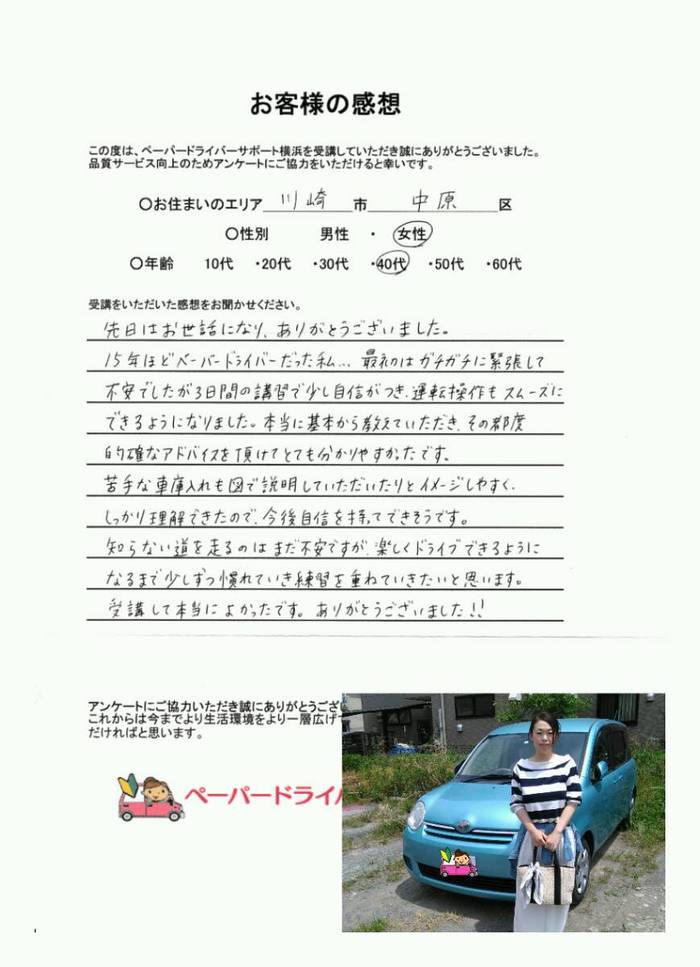 お客様の感想
この度は、ペーパードライバーサポート横浜を受講していただき誠にありがとうございました。
品質サービス向上のためアンケートにご協力をいただけると幸いです。
〇お住まいのエリア 川崎 市 中原 区
〇性別 男性 ・ 女性
〇年齢 10代 ・20代 ・30代 ・40代 ・50代 ・60代
受講をいただいた感想をお聞かせください。
先日はお世話になり、ありがとうございました。
15年ほどペーパードライバーだった私... 最初はガチガチに緊張して
不安でしたが3日間の講習で少し自信がつき、運転操作もスムーズに
できるようになりました。本当に基本から教えていただき、その都度
的確なアドバイスを頂けてとても分かりやすかったです。
苦手な車庫入れも図で説明していただいたりとイメージしやすく、
しっかり理解できたので、今後自信を持ってできそうです。
知らない道を走るのはまだ不安ですが、楽しくドライブできるように
なるまで少しずつ慣れていき練習を重ねていきたいと思います。
受講して本当によかったです。ありがとうございました!!
アンケートにご協力いただき誠にありがとうござ
これからは今までより生活環境をより一層広げ
だければと思います。
ペーパードライ